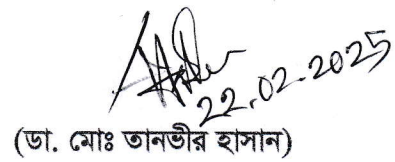 22.02.2025
(ডা. মোঃ তানভীর হাসান)